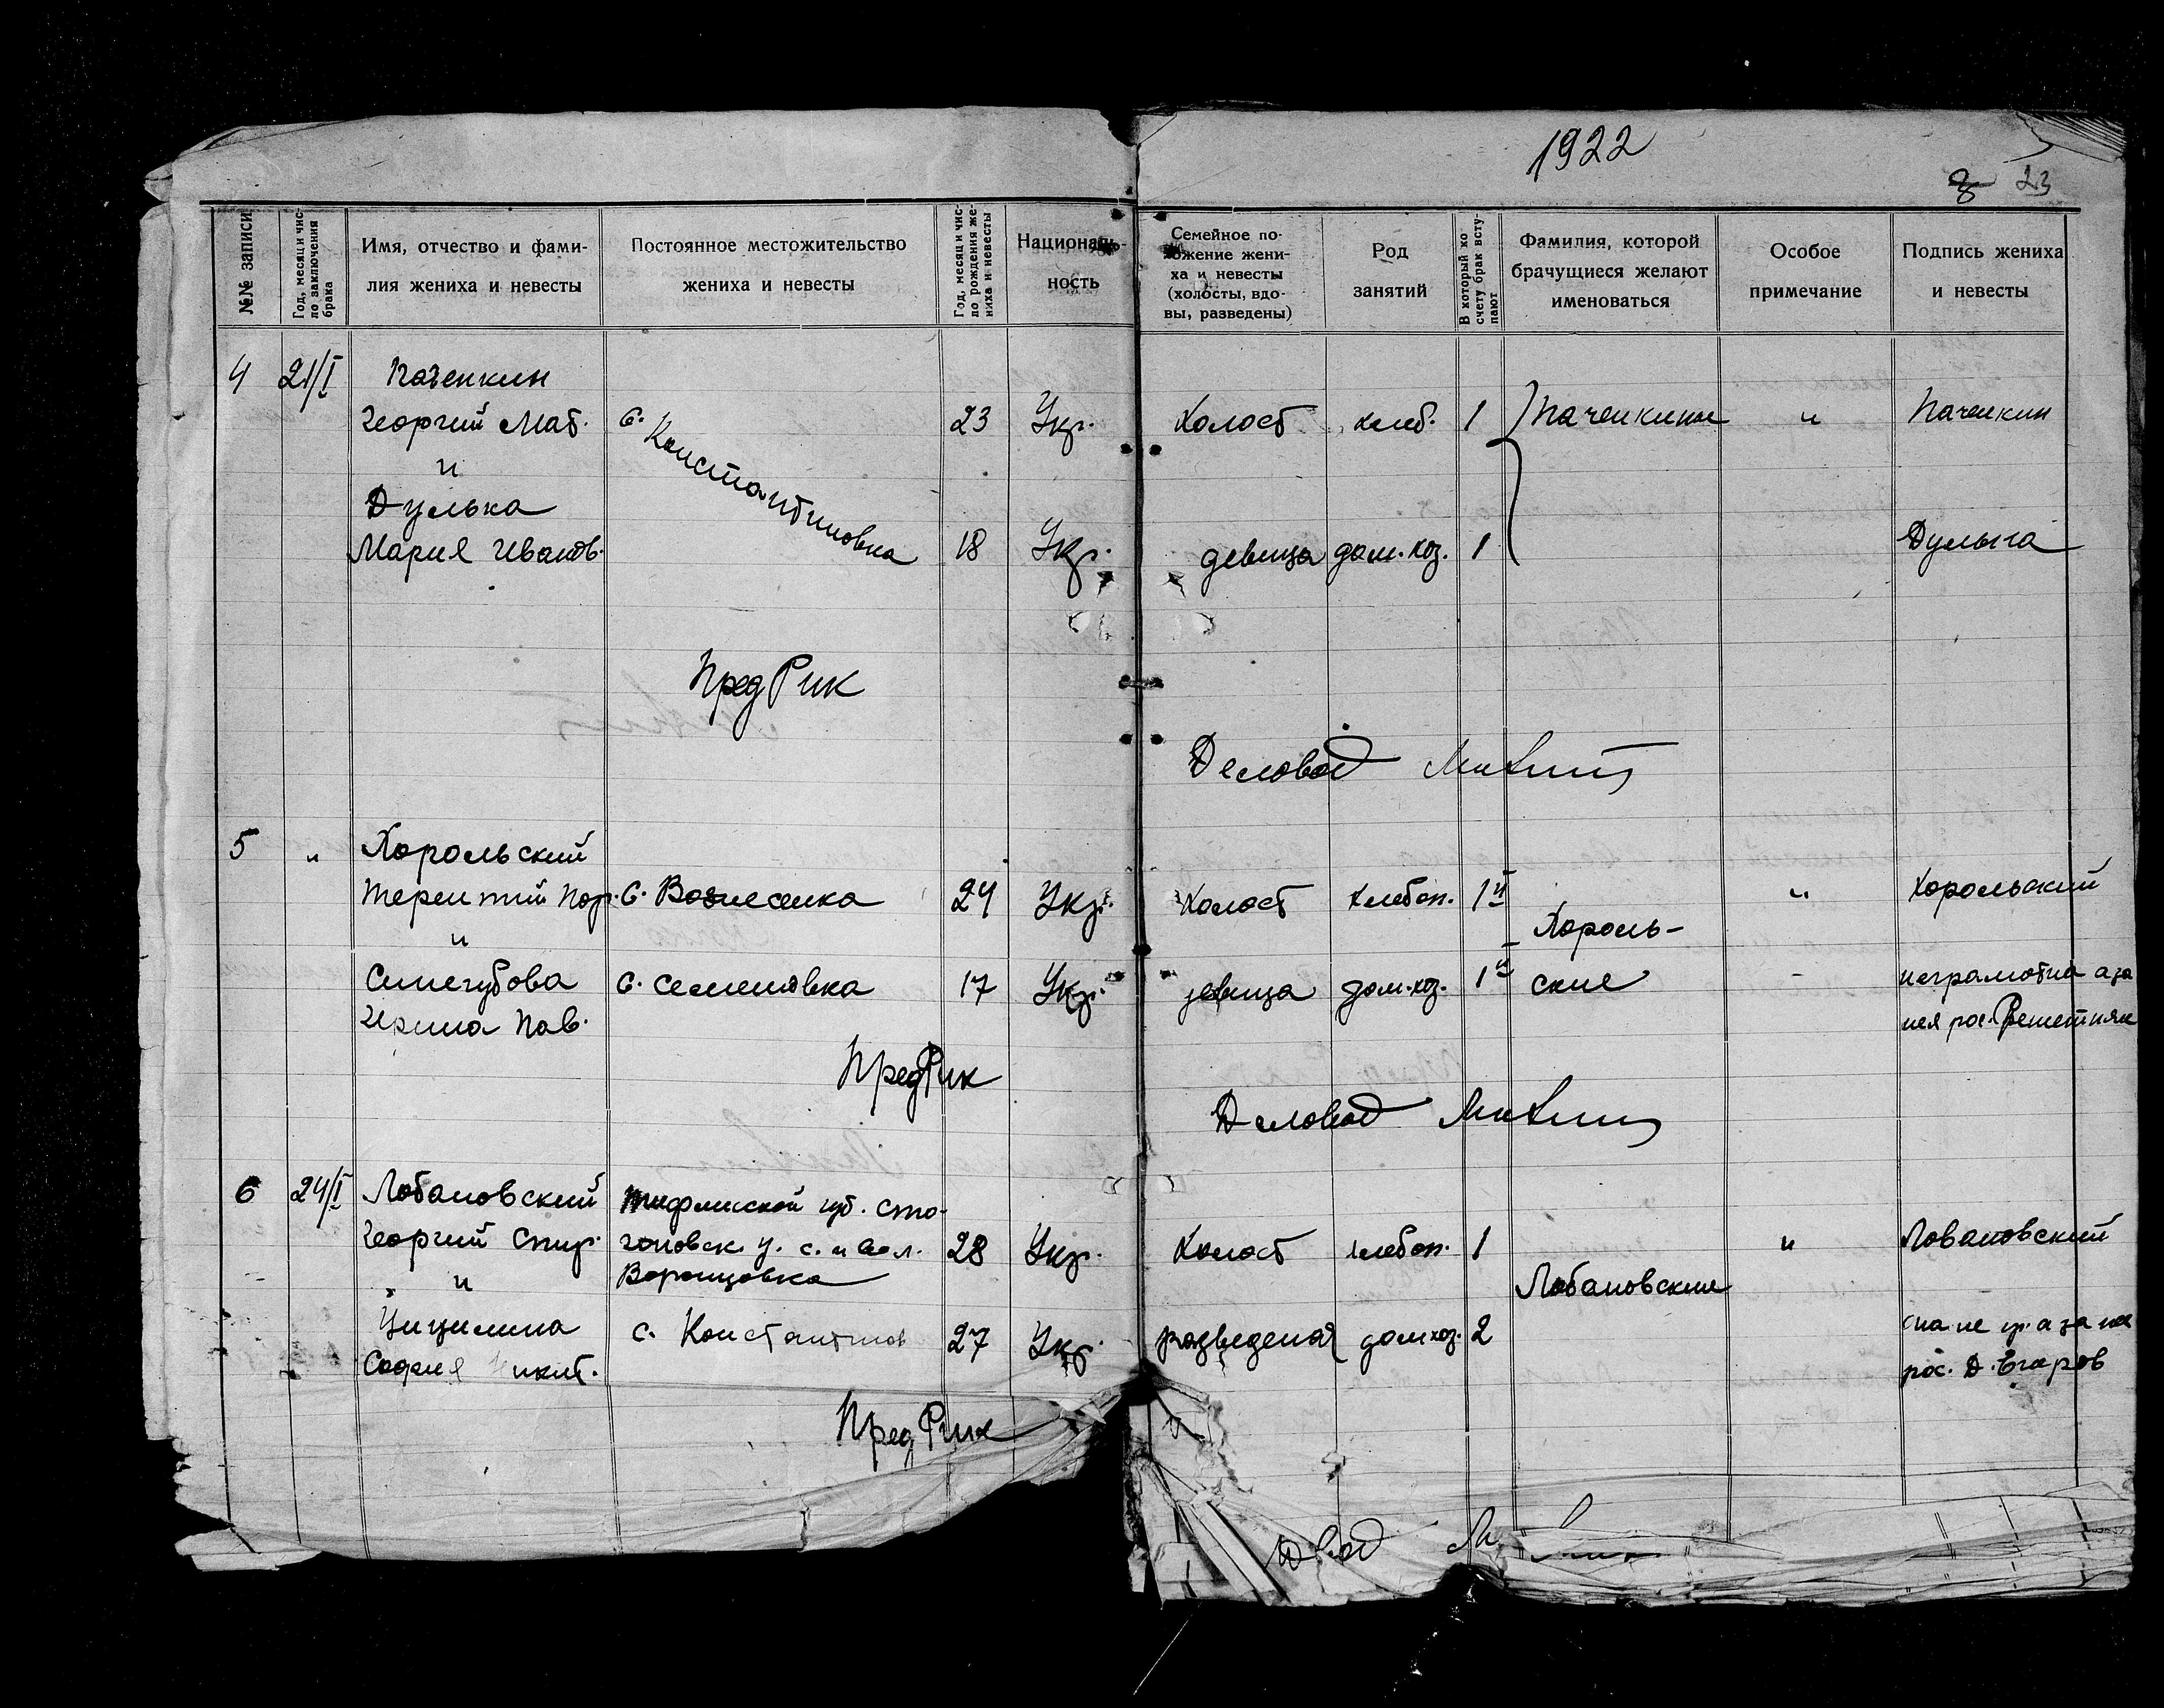 1922
8 23
№№ записи
Год, месяц и чис-
ло заключения
брака
Имя, отчество и фами-
лия жениха и невесты
Постоянное местожительство
жениха и невесты
Год, месяц и чис-
ло рождения же-
ниха и невесты
Националь-
ность
Семейное по-
ложение жени-
ха и невесты
(холосты, вдо-
вы, разведены)
Род
занятий
В который по
счету брак всту-
пают
Фамилия, которой
брачущиеся желают
именоваться
Особое
примечание
Подпись жениха
и невесты
4 21/I Паченкин
Георгий Мат. с. Константиновка 23 Укр. холост хлеб. 1 Паченкины " Паченкин
и
Дулька
Мария Иванов. 18 Укр. девица дом. хоз. 1 Дулька
Пред Рик
Деловод
5 " Хорольский
Терентий Пор. с. Вознесенка 24 Укр. холост хлебоп. 1й " Хорольский
и Хороль-
Синегубова с. Семеновка 17 Укр. девица дом. хоз. 1й ские - неграмотна а за
Ирина Пав. нея рос. Решетняк
Пред Рик
Деловод
6 24/I Лобановский Тифлисской губ.
Георгий Спир. у. с. и вол. 28 Укр. холост хлебоп. 1 " Лобановский
и Воронцовка Лобановские
Цицилина с. Константинов 27 Укр. разведеная дом хоз. 2 она не гр. а за нее
София Никит. рос. Д. Егаров
Пред Рик